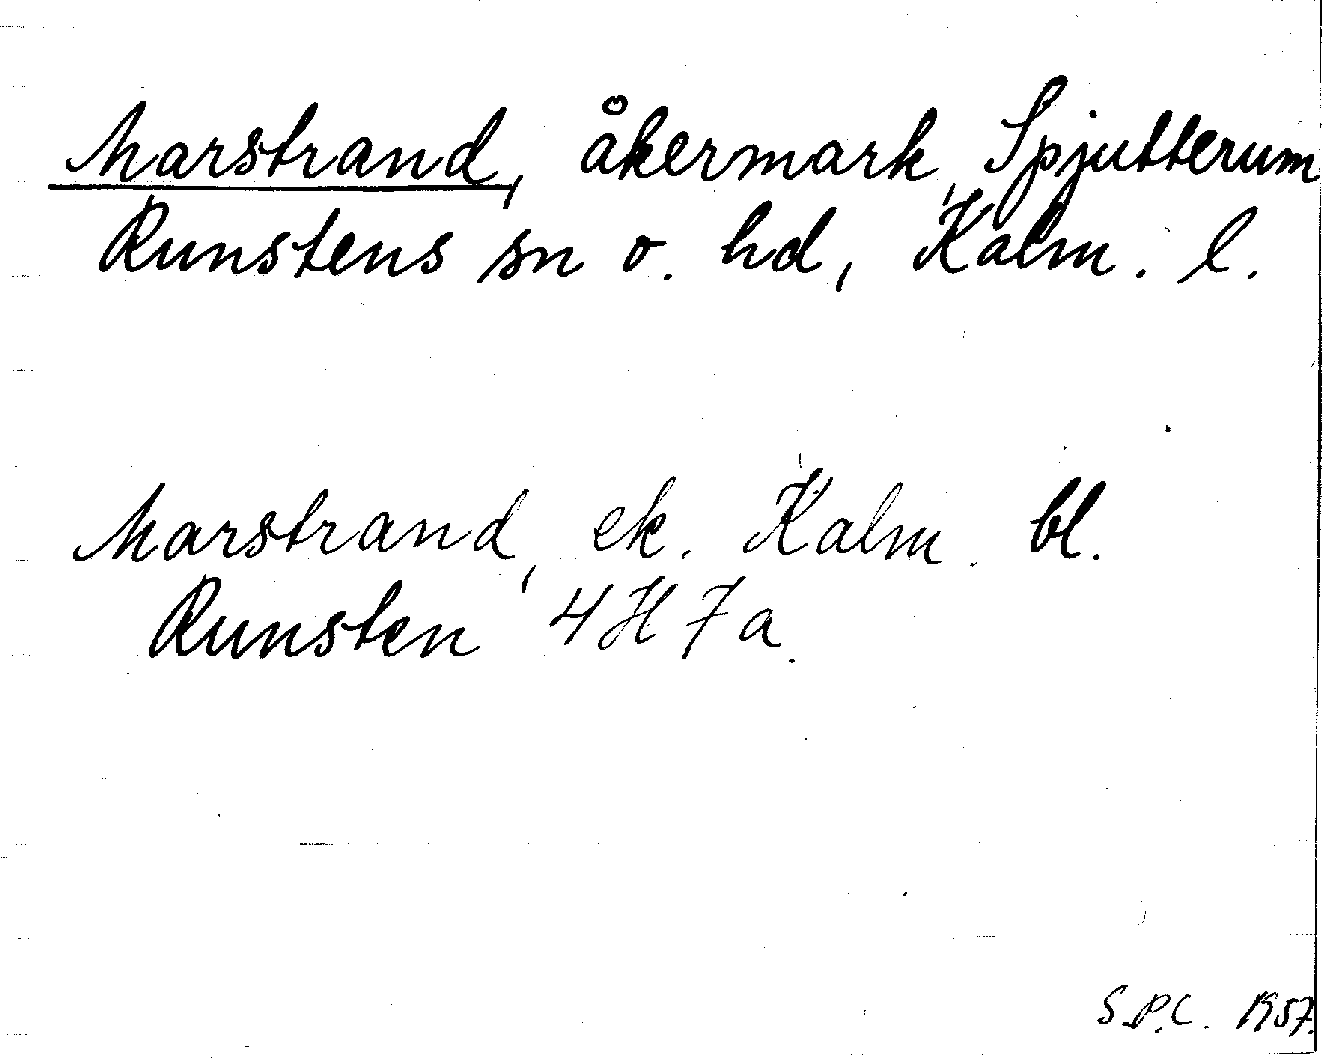 Marstrand, åkermark, Spjutterum
Runstens sn o. hd, Kalm. l.
Marstrand, ek. Kalm. bl.
Runsten 4H7a.
S.P.C. 1957.